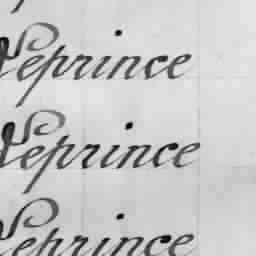 Leprince
Leprince
Leprince